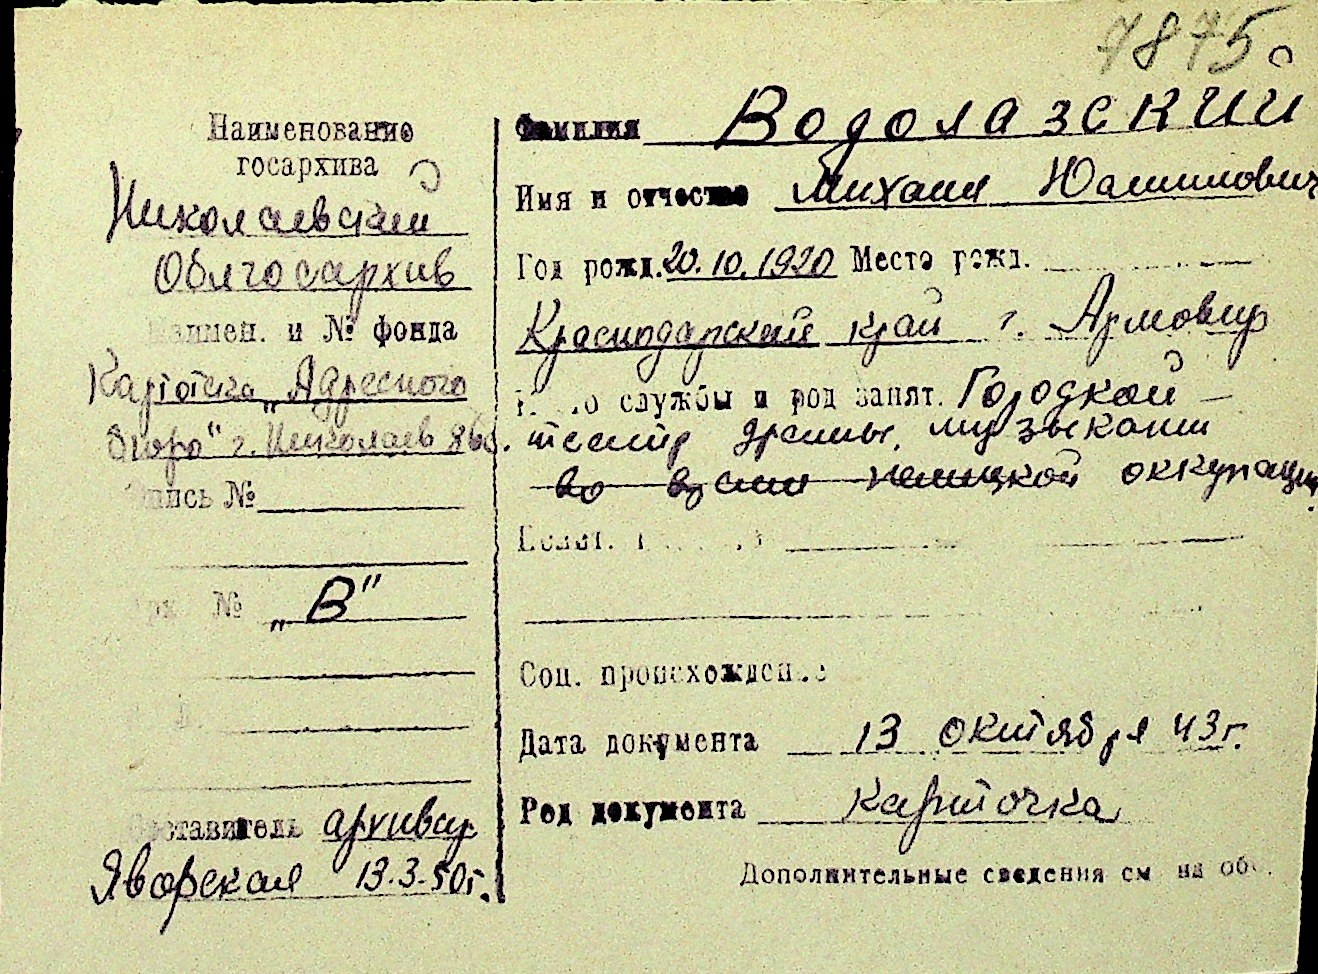 7875
Наименование
госархива
Николаевский
Облгосархив
Наимен. и № фонда
Картотека „Адресного
бюро" г. Николаев
Опись №
Арх. № „В"
Составитель архивар
Яворская 13.3.50г.
Фамилия Водолазский
Имя и отчество Михаил
Год рожд. 20.10.1920 Место рожд.
Краснодарский край г. Армовир
службы и род занят. Городской
театр драмы, музыкант
во время немецкой оккупации.
Соц. происхождение
Дата документа 13 октября 43г.
Род документа карточка
Дополнительные сведения см на об.